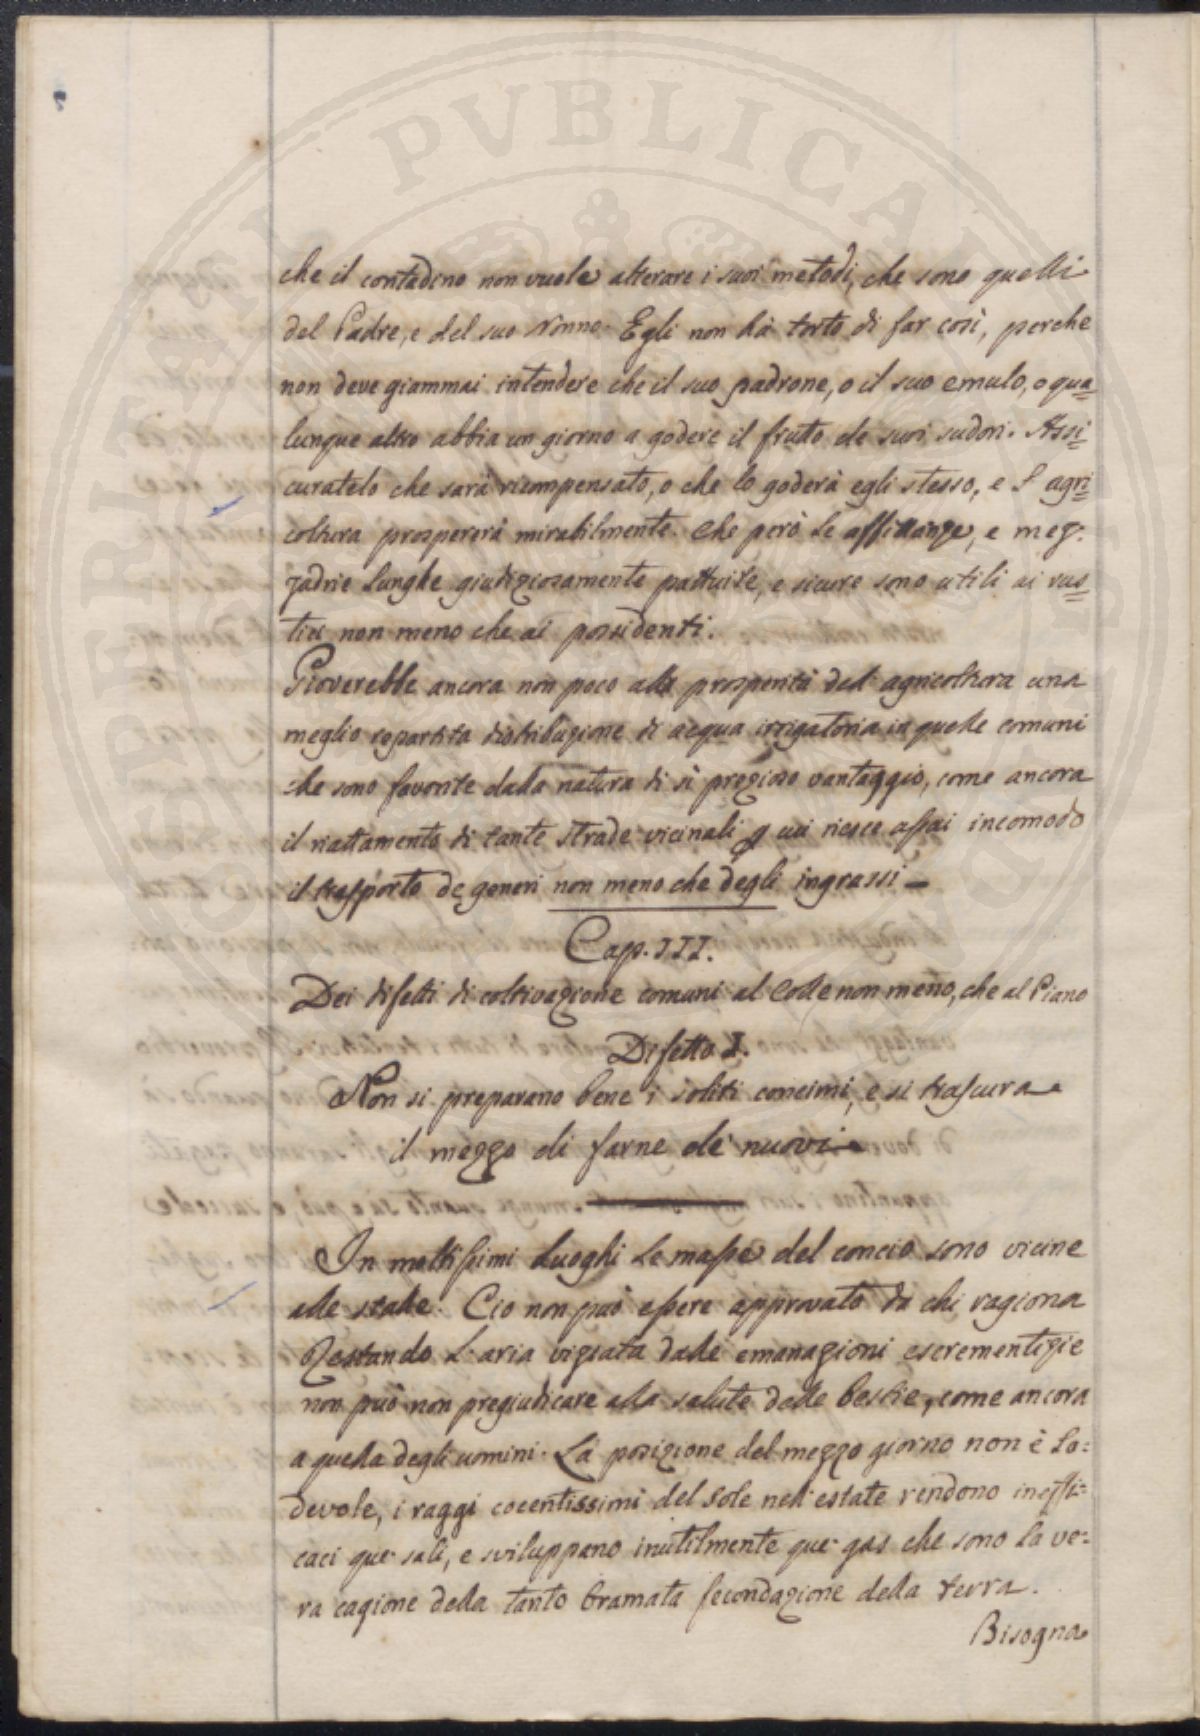 che il contadino non vuole alterare i suoi metodi, che sono quelli
del Padre, e del suo Nonno. Egli non hà torto di far così, perche
non deve giammai intendere che il suo padrone, o il suo emulo, o qua=
lunque altro abbia un giorno a godere il frutto de suoi sudori. Assi=
curatelo che sarà ricompensato, o che lo goderà egli stesso, e l'agri=
coltura prospererà mirabilmente. Che però le affittanze, e mez:
zadrie lunghe giudiziosamente pattuite, e sicure sono utili ai rus=
tici non meno che ai possidenti.
Gioverebbe ancora non poco alla prosperità dell'agricoltura una
meglio repartita distribuzione di acqua irrigatoria in quelle comuni
che sono favorite dalla natura di sì prezioso vantaggio, come ancora
il riattamento di tante strade vicinali p cui riesce assai incomodo
il trasporto de generi non meno che degli ingrassi -
Cap. III.
Dei difetti di coltivazione comuni al Colle non meno, che al Piano
Difetto I.
Non si preparano bene i soliti concimi, e si trascura
il mezzo di farne de' nuovi
In moltissimi luoghi le masse del concio sono vicine
alle stalle. Cio non può essere approvato da chi ragiona
Restando l'aria viziata dalle emanazioni escrementizie
non può non pregiudicare alla salute delle bestie, come ancora
a quella degli uomini. La posizione del mezzo giorno non è lo=
devole, i raggi cocentissimi del Sole nell'estate rendono ineffi=
caci que' sali, e sviluppano inutilmente que' gas che sono la ve=
ra cagione della tanto bramata fecondazione della terra.
Bisogna